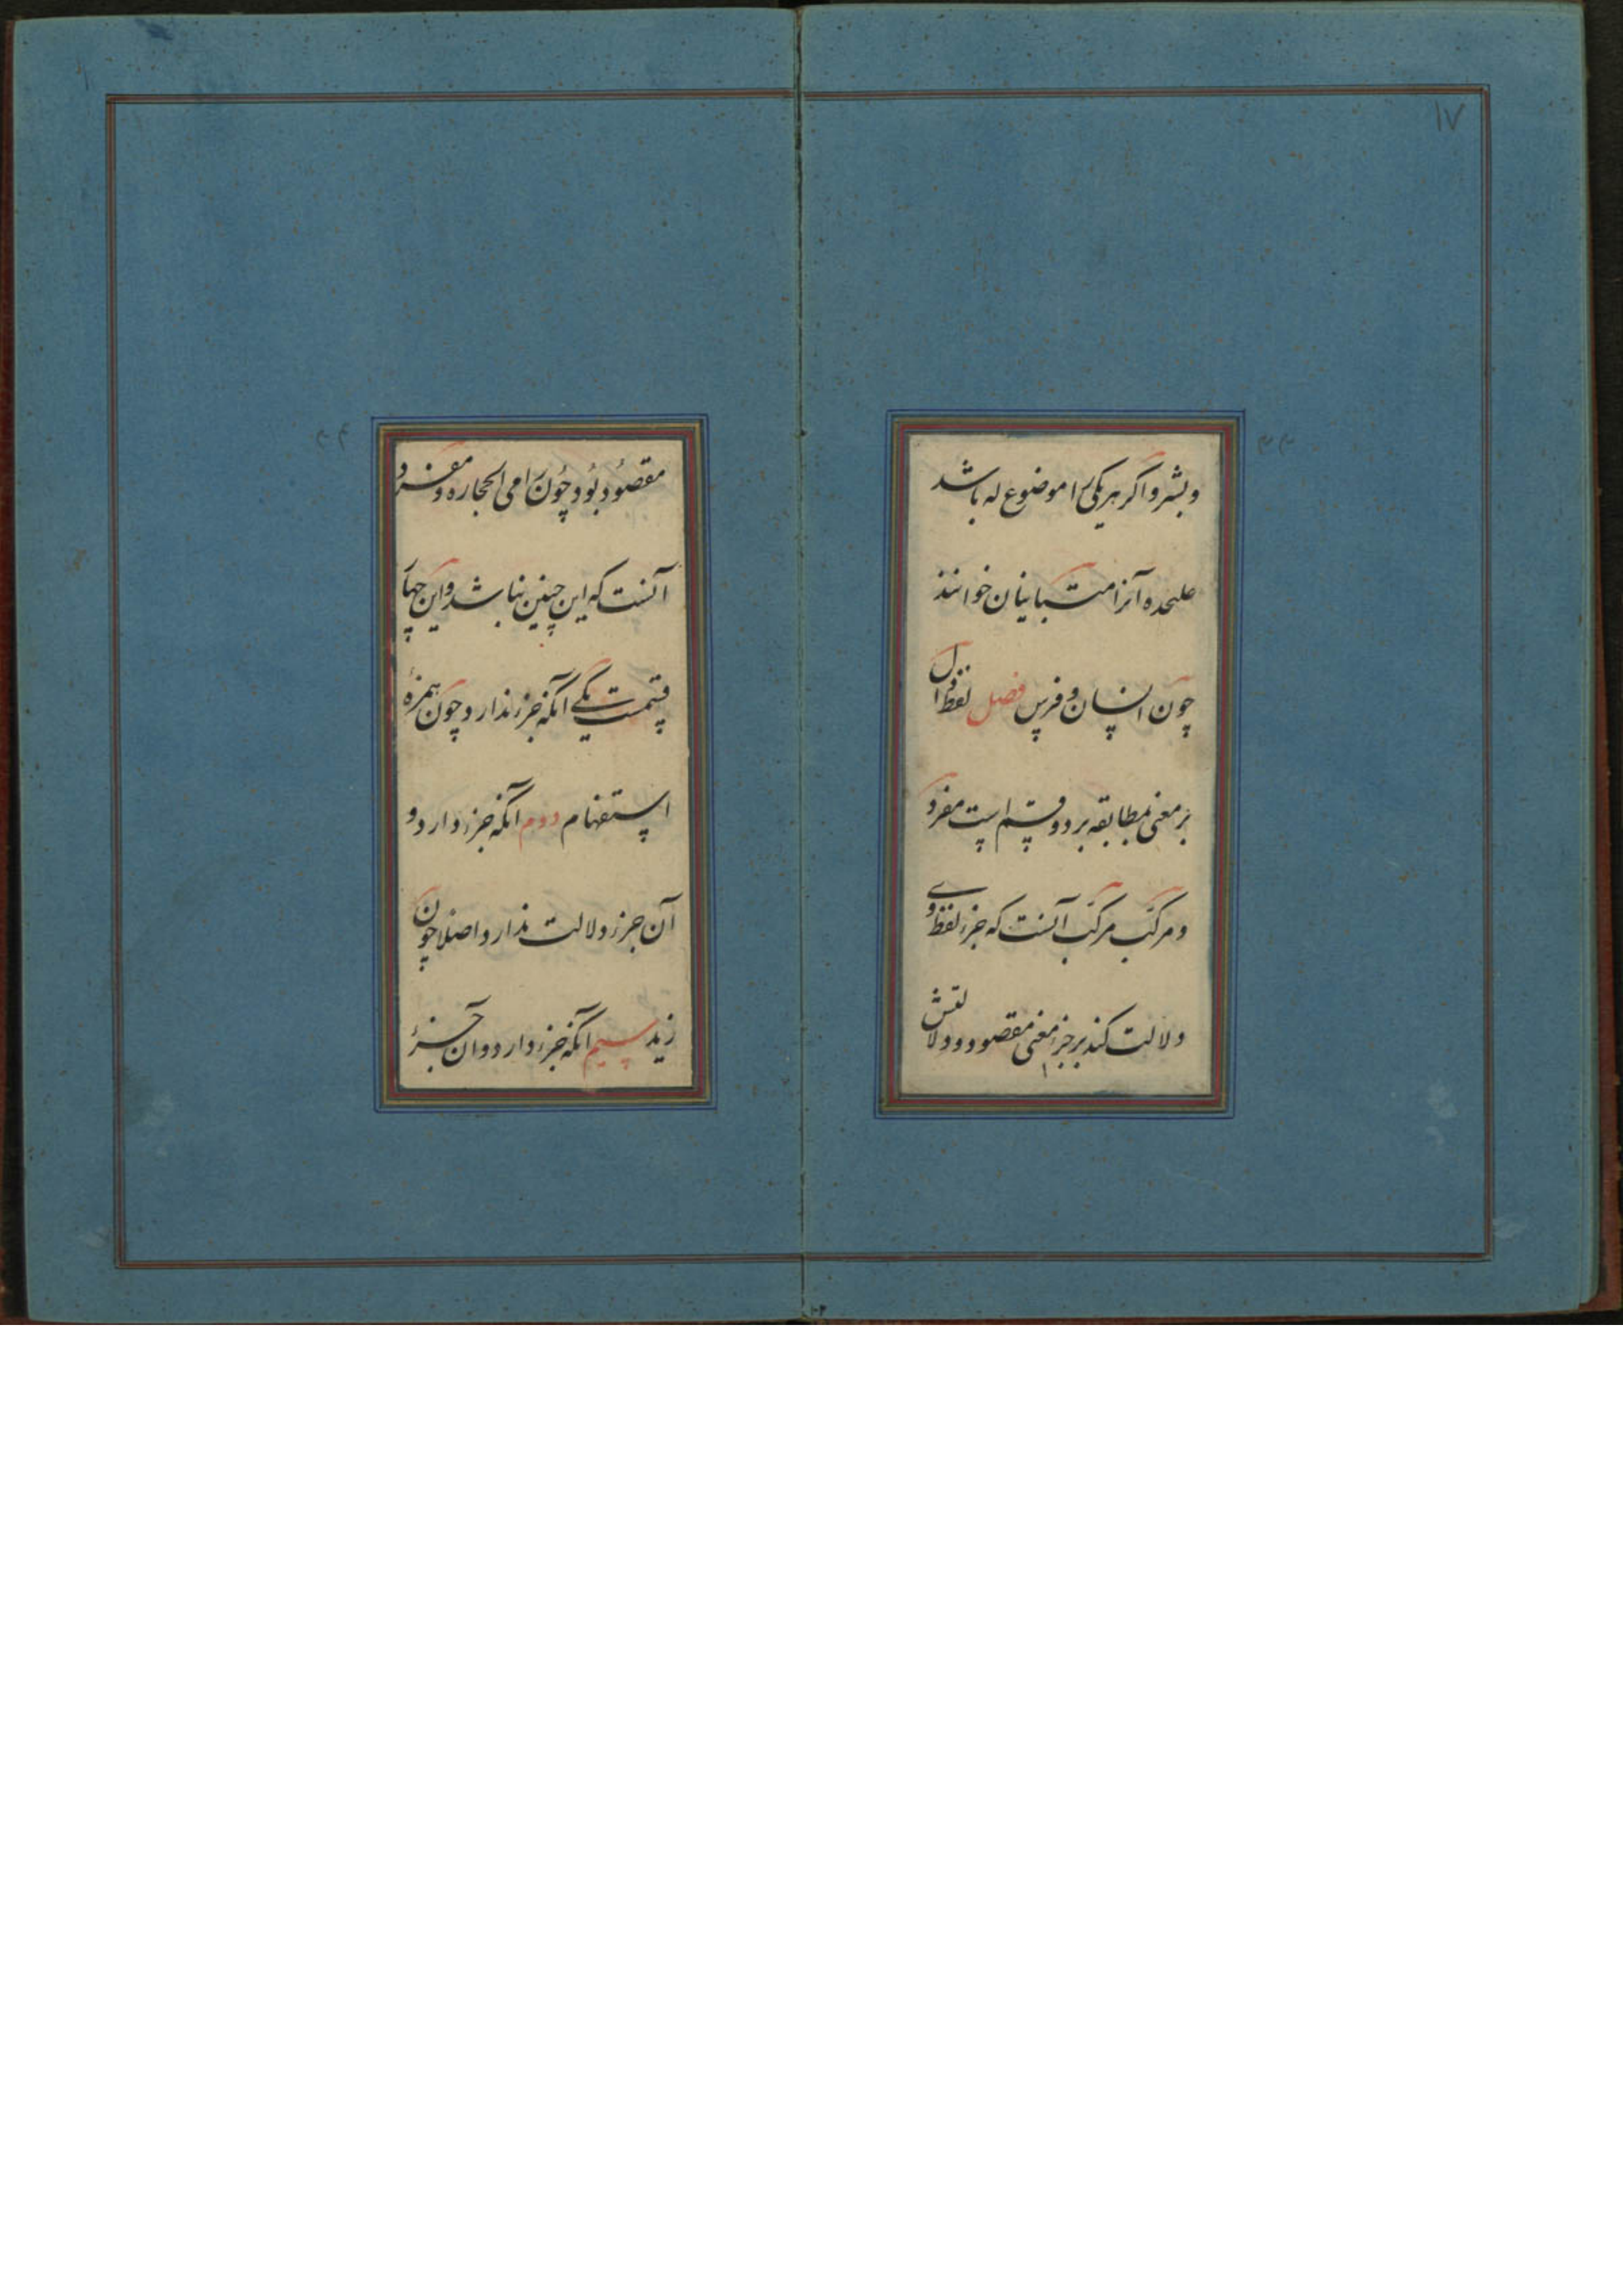 ۱۷
و بشر و اگر هر یکی را موضوع له باشد
علیحده آنرا متباینان خوانند
چون انسان و فرس فصل لفظ دال
بر معنی بمطابقه بر دو قسم است مفرد
و مرکب مرکب آنست که جزء لفظ وی
دلالت کند بر جزء معنی مقصود و دلالتش
مقصود بود چون رامی الحجاره و مفرد
آنست که این چنین نباشد و این چهار
قسمست یکی آنکه جزء ندارد چون همزهٔ
استفهام دوم آنکه جزء دارد و
آن جزء دلالت ندارد اصلا چون
زید سیم آنکه جزء دارد و آن جزء